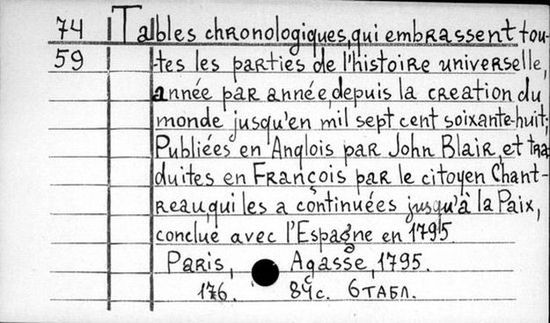 74 Tables chronologiques, qui embrassent tou-
59 tes les parties de l'histoire universelle,
année par année, depuis la creation du
monde jusqu'en mil sept cent soixante-huit;
Publiées en Anglois par John Blair, et tra
duites en François par le citoyen Chant-
reau, qui les a continuées jusqu'à la Paix,
conclue avec l'Espagne en 1795
Paris, Agasse, 1795.
176. 84c. 6 табл.